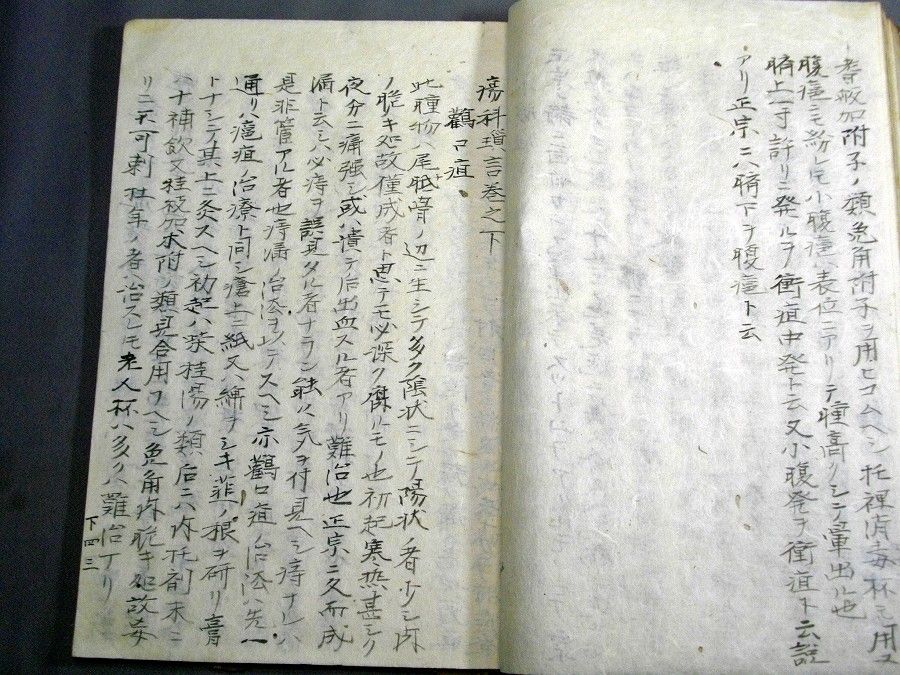 耆皈加附子ノ類兎角附子ヲ用ヒコムヘシ托裡消毒杯モ用ユ
腹癰モ紛レ𪜈小腹癰ハ表位ニアリテ腫高リシテ暈出ル也
臍上一寸許リニ発ルヲ衝疽中発ト云又小腹発ヲ衝疽ト云説
アリ正宗ニハ臍下ヲ腹癰ト云
瘍科瑣言巻之下
鸛口疽
此腫物ハ尾骶骨ノ辺ニ生シテ多ク陰状ニシテ陽状ノ者少シ肉
ノ脆キ処故僅成者ト思テモ必深ク腐ルモノ也初起寒熱甚シク
夜分ニ痛強シ或ハ潰テ后出血スル者アリ難治也正宗ニ久而成
漏ト云シハ必痔ヲ誤見タル者ナラン能ハ気ヲ付見ヘシ痔ナレハ
是非管アル者也痔漏ノ治法ヲ以テスヘシ亦鸛口疽治法ハ先一
通リ癰疽ノ治療ト同シ瘡上ニ紙又ハ綿ヲシキ韮ノ根ヲ研リ膏
トナシテ其上ニ灸スヘシ初起ハ葉桂湯ノ類后ニハ内托剤末ニ
ハ十補飲又桂皈朮附ノ類見合用フヘシ兎角肉脆キ処故妄
リニ不可刺壮年ノ者治スレ𪜈老人杯ハ多クハ難治ナリ
下四三